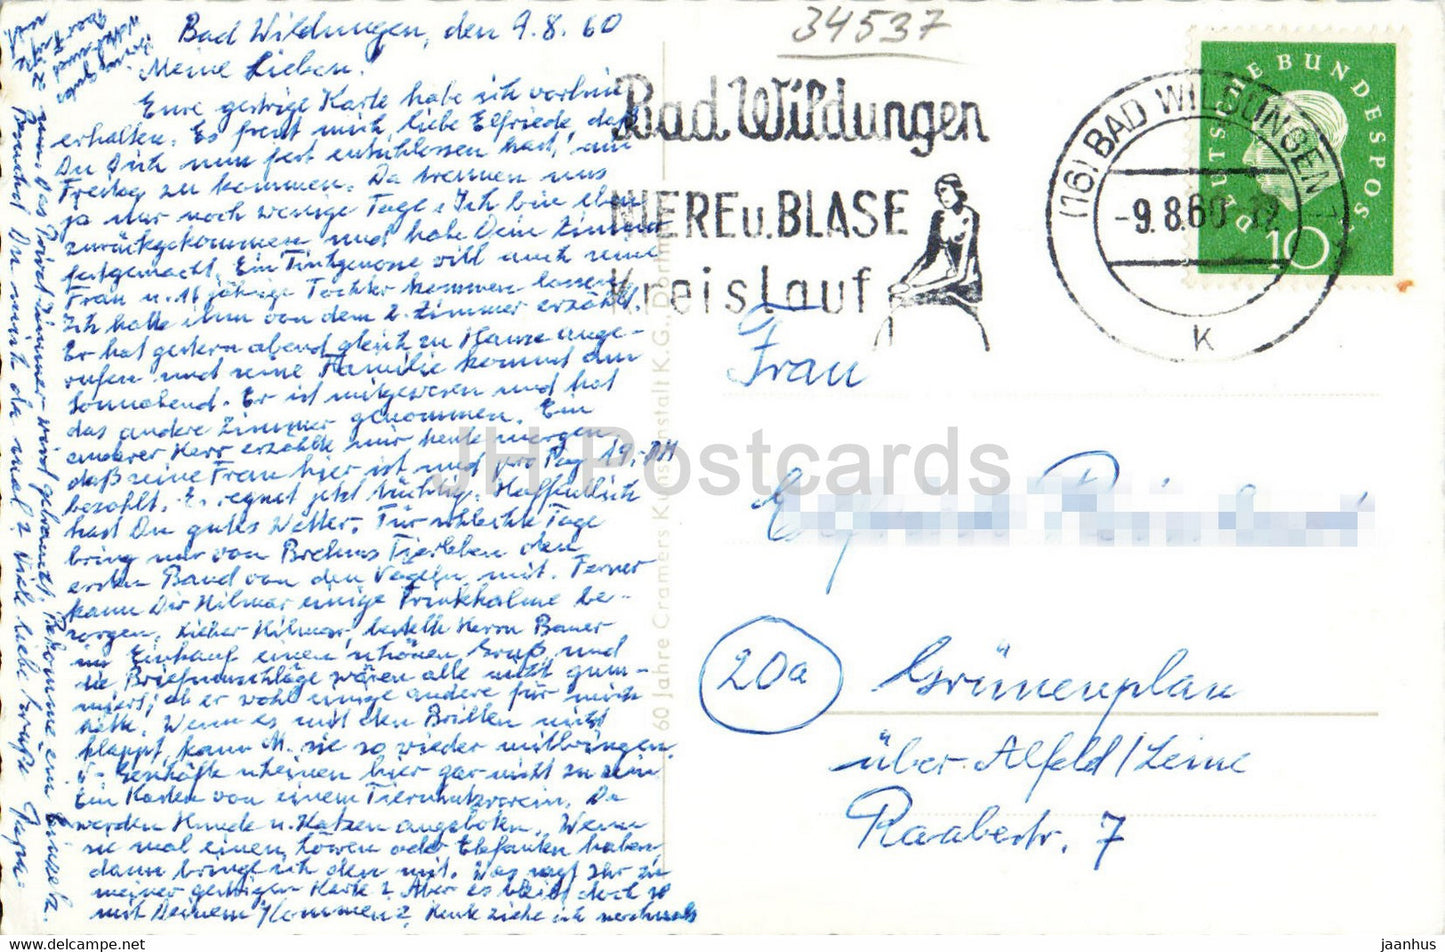 34537
Bad Wildungen, den 9.8.60
Meine Lieben!
Eure gestrige Karte habe ich vorhin
erhalten. Es freut mich, liebe Elfriede, daß
Du Dich nun fest entschlossen hast, am
Freitag zu kommen. Da trennen uns
ja nur noch wenige Tage. Ich bin eben
zurückgekommen und habe Dein Zimmer
festgemacht. Ein Tischgenosse will auch seine
Frau u. 16 jährige Tochter kommen lassen.
Ich hatte ihm von dem 2. Zimmer erzählt.
Er hat gestern abend gleich zu Hause ange-
rufen und seine Familie kommt am
Sonnabend. Er ist mitgewesen und hat
das andere Zimmer genommen. Ein
anderer Herr erzählte mir heute morgen,
daß seine Frau hier ist und pro Tag 19,- DM
bezahlt. Es regnet jetzt tüchtig. Hoffentlich
hast Du gutes Wetter. Für schlechte Tage
bring mir von Brehms Tierleben den
ersten Band von den Vögeln mit. Ferner
kann Dir Hilmar einige Trinkhalme be-
sorgen. Lieber Hilmar, bestelle Herrn Bauer
im Einkauf einen schönen Gruß und
die Briefumschläge wären alle nicht gum-
miert; ob er wohl einige andere für mich
hätte. Wenn es mit den Brillen nicht
klappt, kann M. sie so wieder mitbringen.
Geschäfte scheinen hier gar nicht zu sein
Ein Kasten von einem Tierschutzverein. Da
werden Hunde u. Katzen angeboten. Wenn
sie mal einen Löwen oder Elefanten haben
dann bringe ich den mit. Was sagt Ihr zu
meiner gestrigen Karte? Aber es bleibt doch so
mit Deinem Kommen? Heute ziehe ich nochmals
um. Das Privatzimmer wird gebraucht. Bekomme ein Einzelz.
Brauchst Du nicht da mal? Viele liebe Grüße Papa.
Bad Wildungen
NIERE u. BLASE
Kreislauf
(16) BAD WILDUNGEN 1
-9.8.60-12
K
DEUTSCHE BUNDESPOST
10
60 Jahre Cramers Kunstanstalt K.G., Dortmund
Frau
20a
Grünenplan
über Alfeld/Leine
Raabestr. 7
JH Postcards
jaanhus